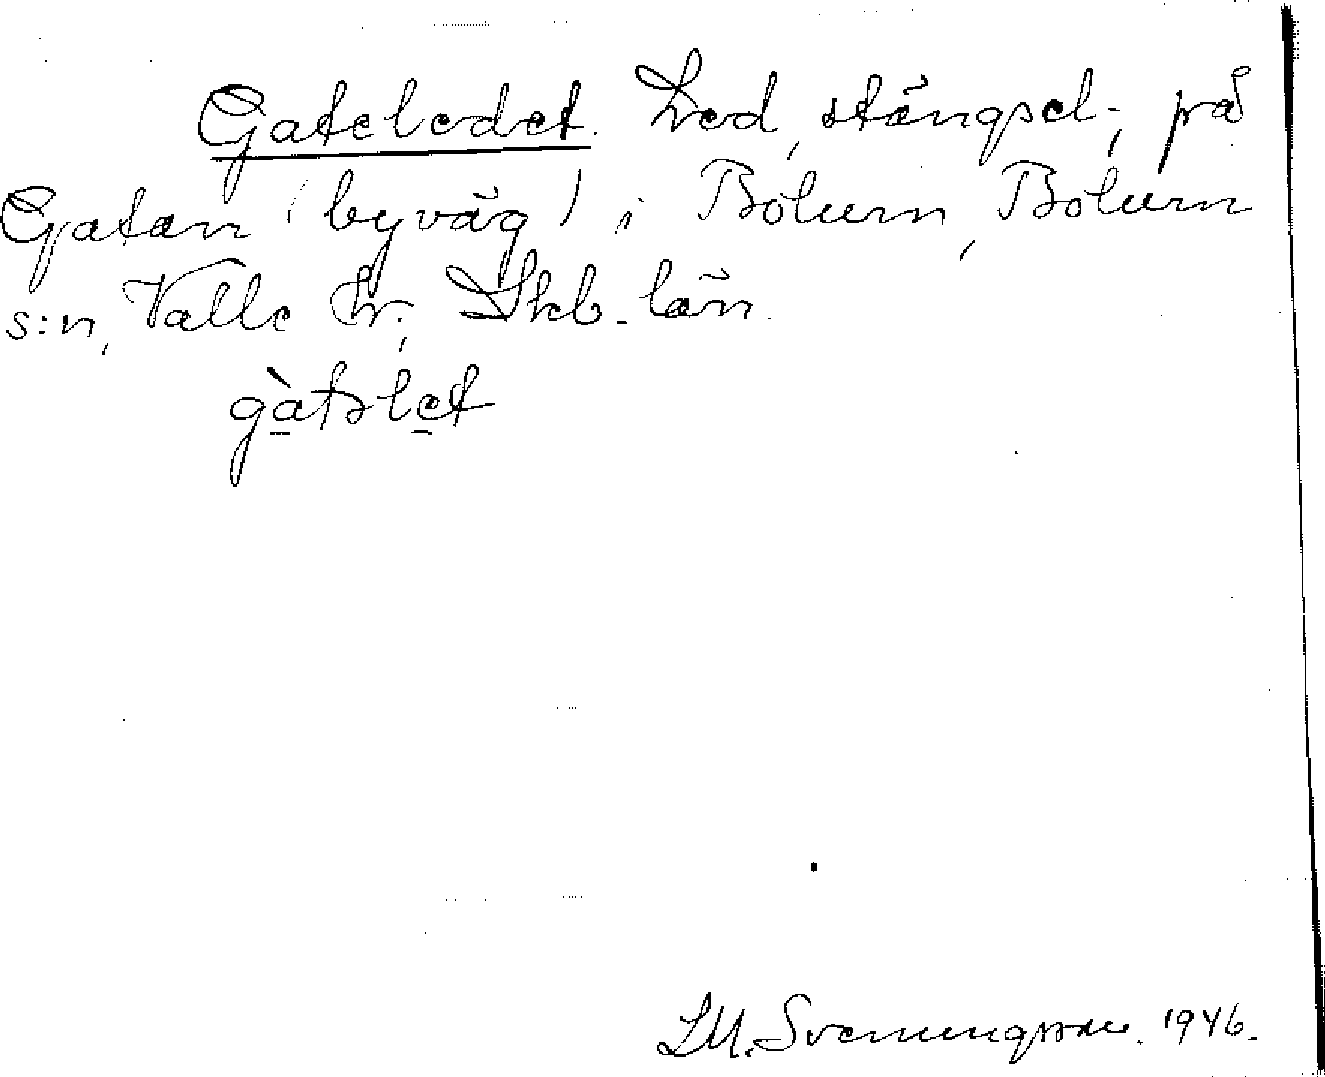 Gateledet. Led, stängsel, på
Gatan (byväg) i Bolum, Bolum
s:n, Valle hr, Skb. län.
gàtslet
S.M. Svenningsson. 1946.